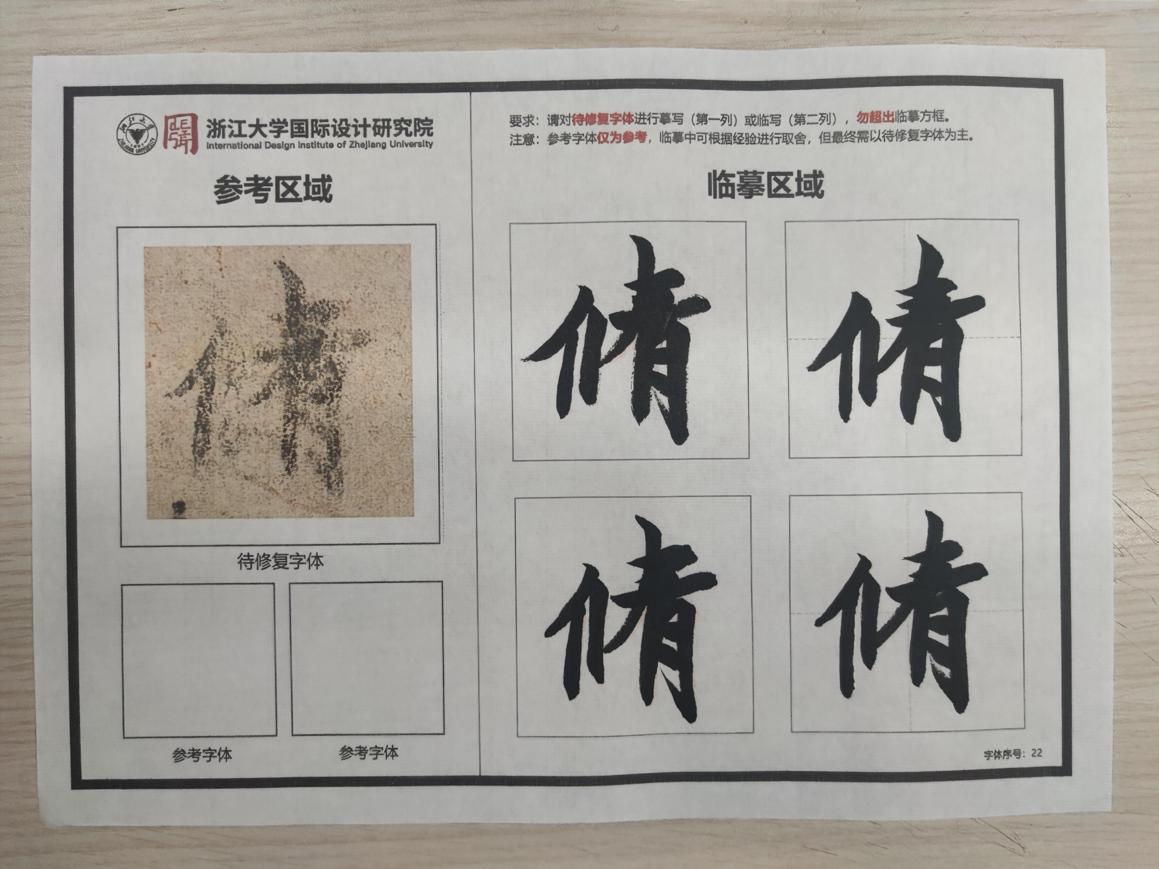 浙江大学国际设计研究院
International Design Institute of Zhejiang University
参考区域
待修复字体
参考字体
参考字体
要求：请对待修复字体进行摹写（第一列）或临写（第二列），勿超出临摹方框。
注意：参考字体仅为参考，临摹中可根据经验进行取舍，但最终需以待修复字体为主。
临摹区域
倩 倩
倩 倩
字体序号：22